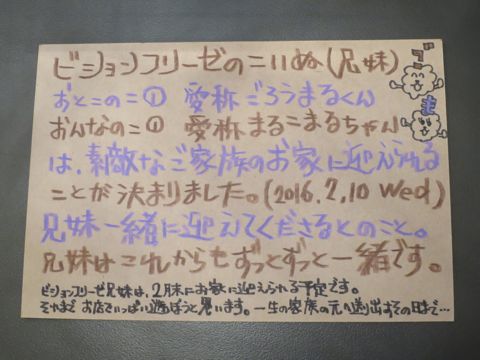 ビションフリーゼのこいぬ(兄妹)
おとこのこ① 愛称ごろうまるくん
おんなのこ① 愛称まるこまるちゃん
は、素敵なご家族のお家に迎えられる
ことが決まりました。(2016.2.10 Wed)
兄妹一緒に迎えてくださるとのこと。
兄妹はこれからもずっとずっと一緒です。
ビションフリーゼ兄妹は、2月末にお家に迎えられる予定です。
それまでお店でいっぱい遊ぼうと思います。一生の家族の元へ送り出すその日まで…
ご
ま